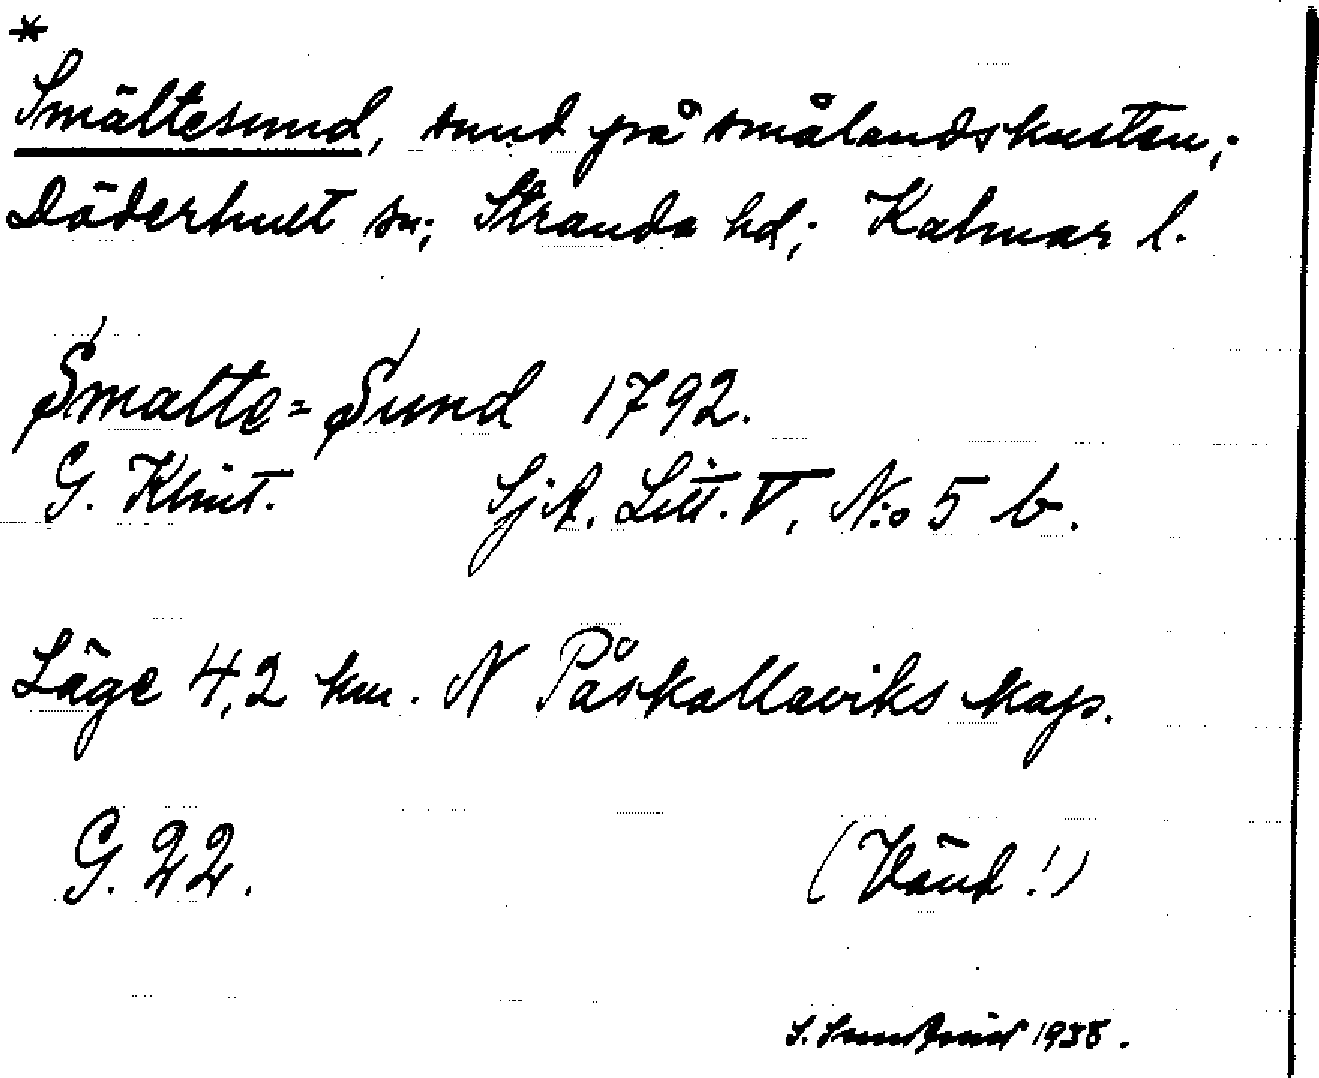 *
Smältesund, sund på smålandskusten;
Döderhult sn; Stranda hd; Kalmar l.
Smalte=Sund 1792.
G. Klint. SjA. Litt. V, N:o 5 b.
Läge 4,2 km. N Påskallaviks kap.
G. 22.
(Vänd!)
S. 1938.